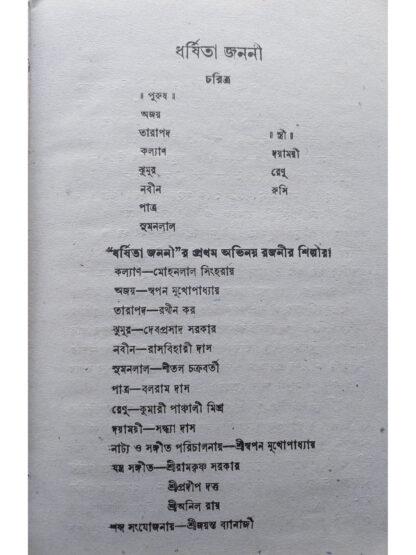 ধর্ষিতা জননী
চরিত্র
॥ পুরুষ ॥
অজয়
তারাপদ
॥ স্ত্রী ॥
কল্যাণ
দয়াময়ী
ঝুমুর
রেণু
নবীন
রুসি
পাত্র
সুমনলাল
“ধর্ষিতা জননী”র প্রথম অভিনয় রজনীর শিল্পীরা
কল্যাণ—মোহনলাল সিংহরায়
অজয়—স্বপন মুখোপাধ্যায়
তারাপদ—রথীন কর
ঝুমুর—দেবপ্রসাদ সরকার
নবীন—রাসবিহারী দাস
সুমনলাল—শীতল চক্রবর্তী
পাত্র—বলরাম দাস
রেণু—কুমারী পাঞ্চালী মিশ্র
দয়াময়ী—সন্ধ্যা দাস
নাট্য ও সঙ্গীত পরিচালনায়—শ্রীস্বপন মুখোপাধ্যায়
যন্ত্র সঙ্গীত—শ্রীরামকৃষ্ণ সরকার
শ্রীপ্রদীপ দত্ত
শ্রীঅনিল রায়
শব্দ সংযোজনায়—শ্রীজয়ন্ত ব্যানার্জী